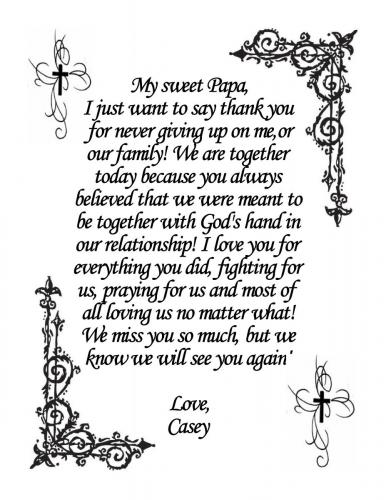 My sweet Papa,
I just want to say thank you
for never giving up on me,or
our family! We are together
today because you always
believed that we were meant to
be together with God's hand in
our relationship! I love you for
everything you did, fighting for
us, praying for us and most of
all loving us no matter what!
We miss you so much, but we
know we will see you again'
Love,
Casey